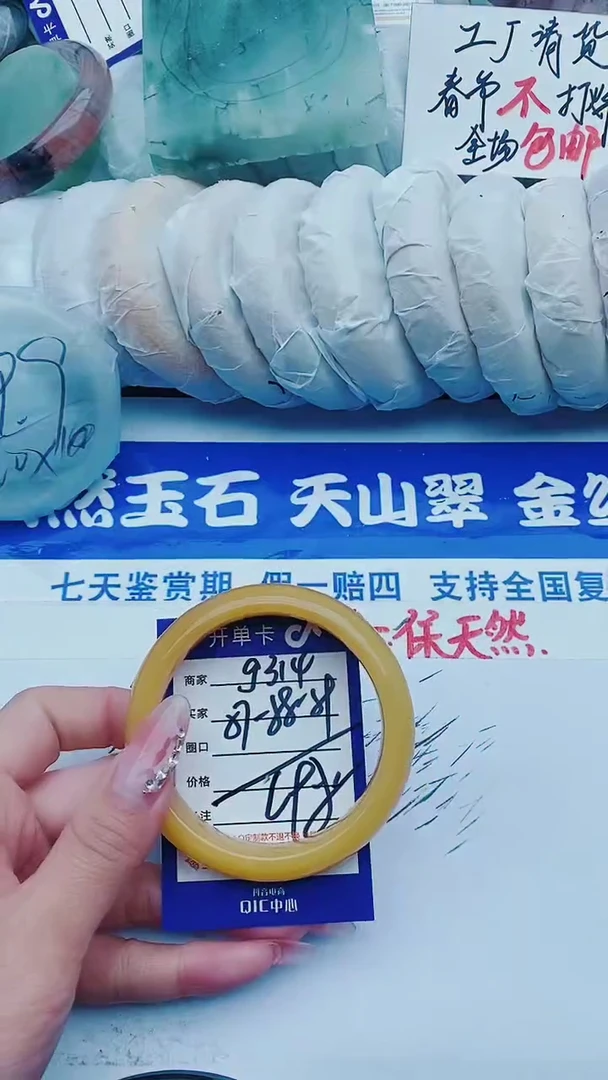 工厂清货
春节不打烊
全场包邮
然玉石 天山翠 金丝
七天鉴赏期 假一赔四 支持全国复
保天然
开单卡
商家 9314
买家 87-88-89
圈口
价格
注
抖音电商
QIC中心